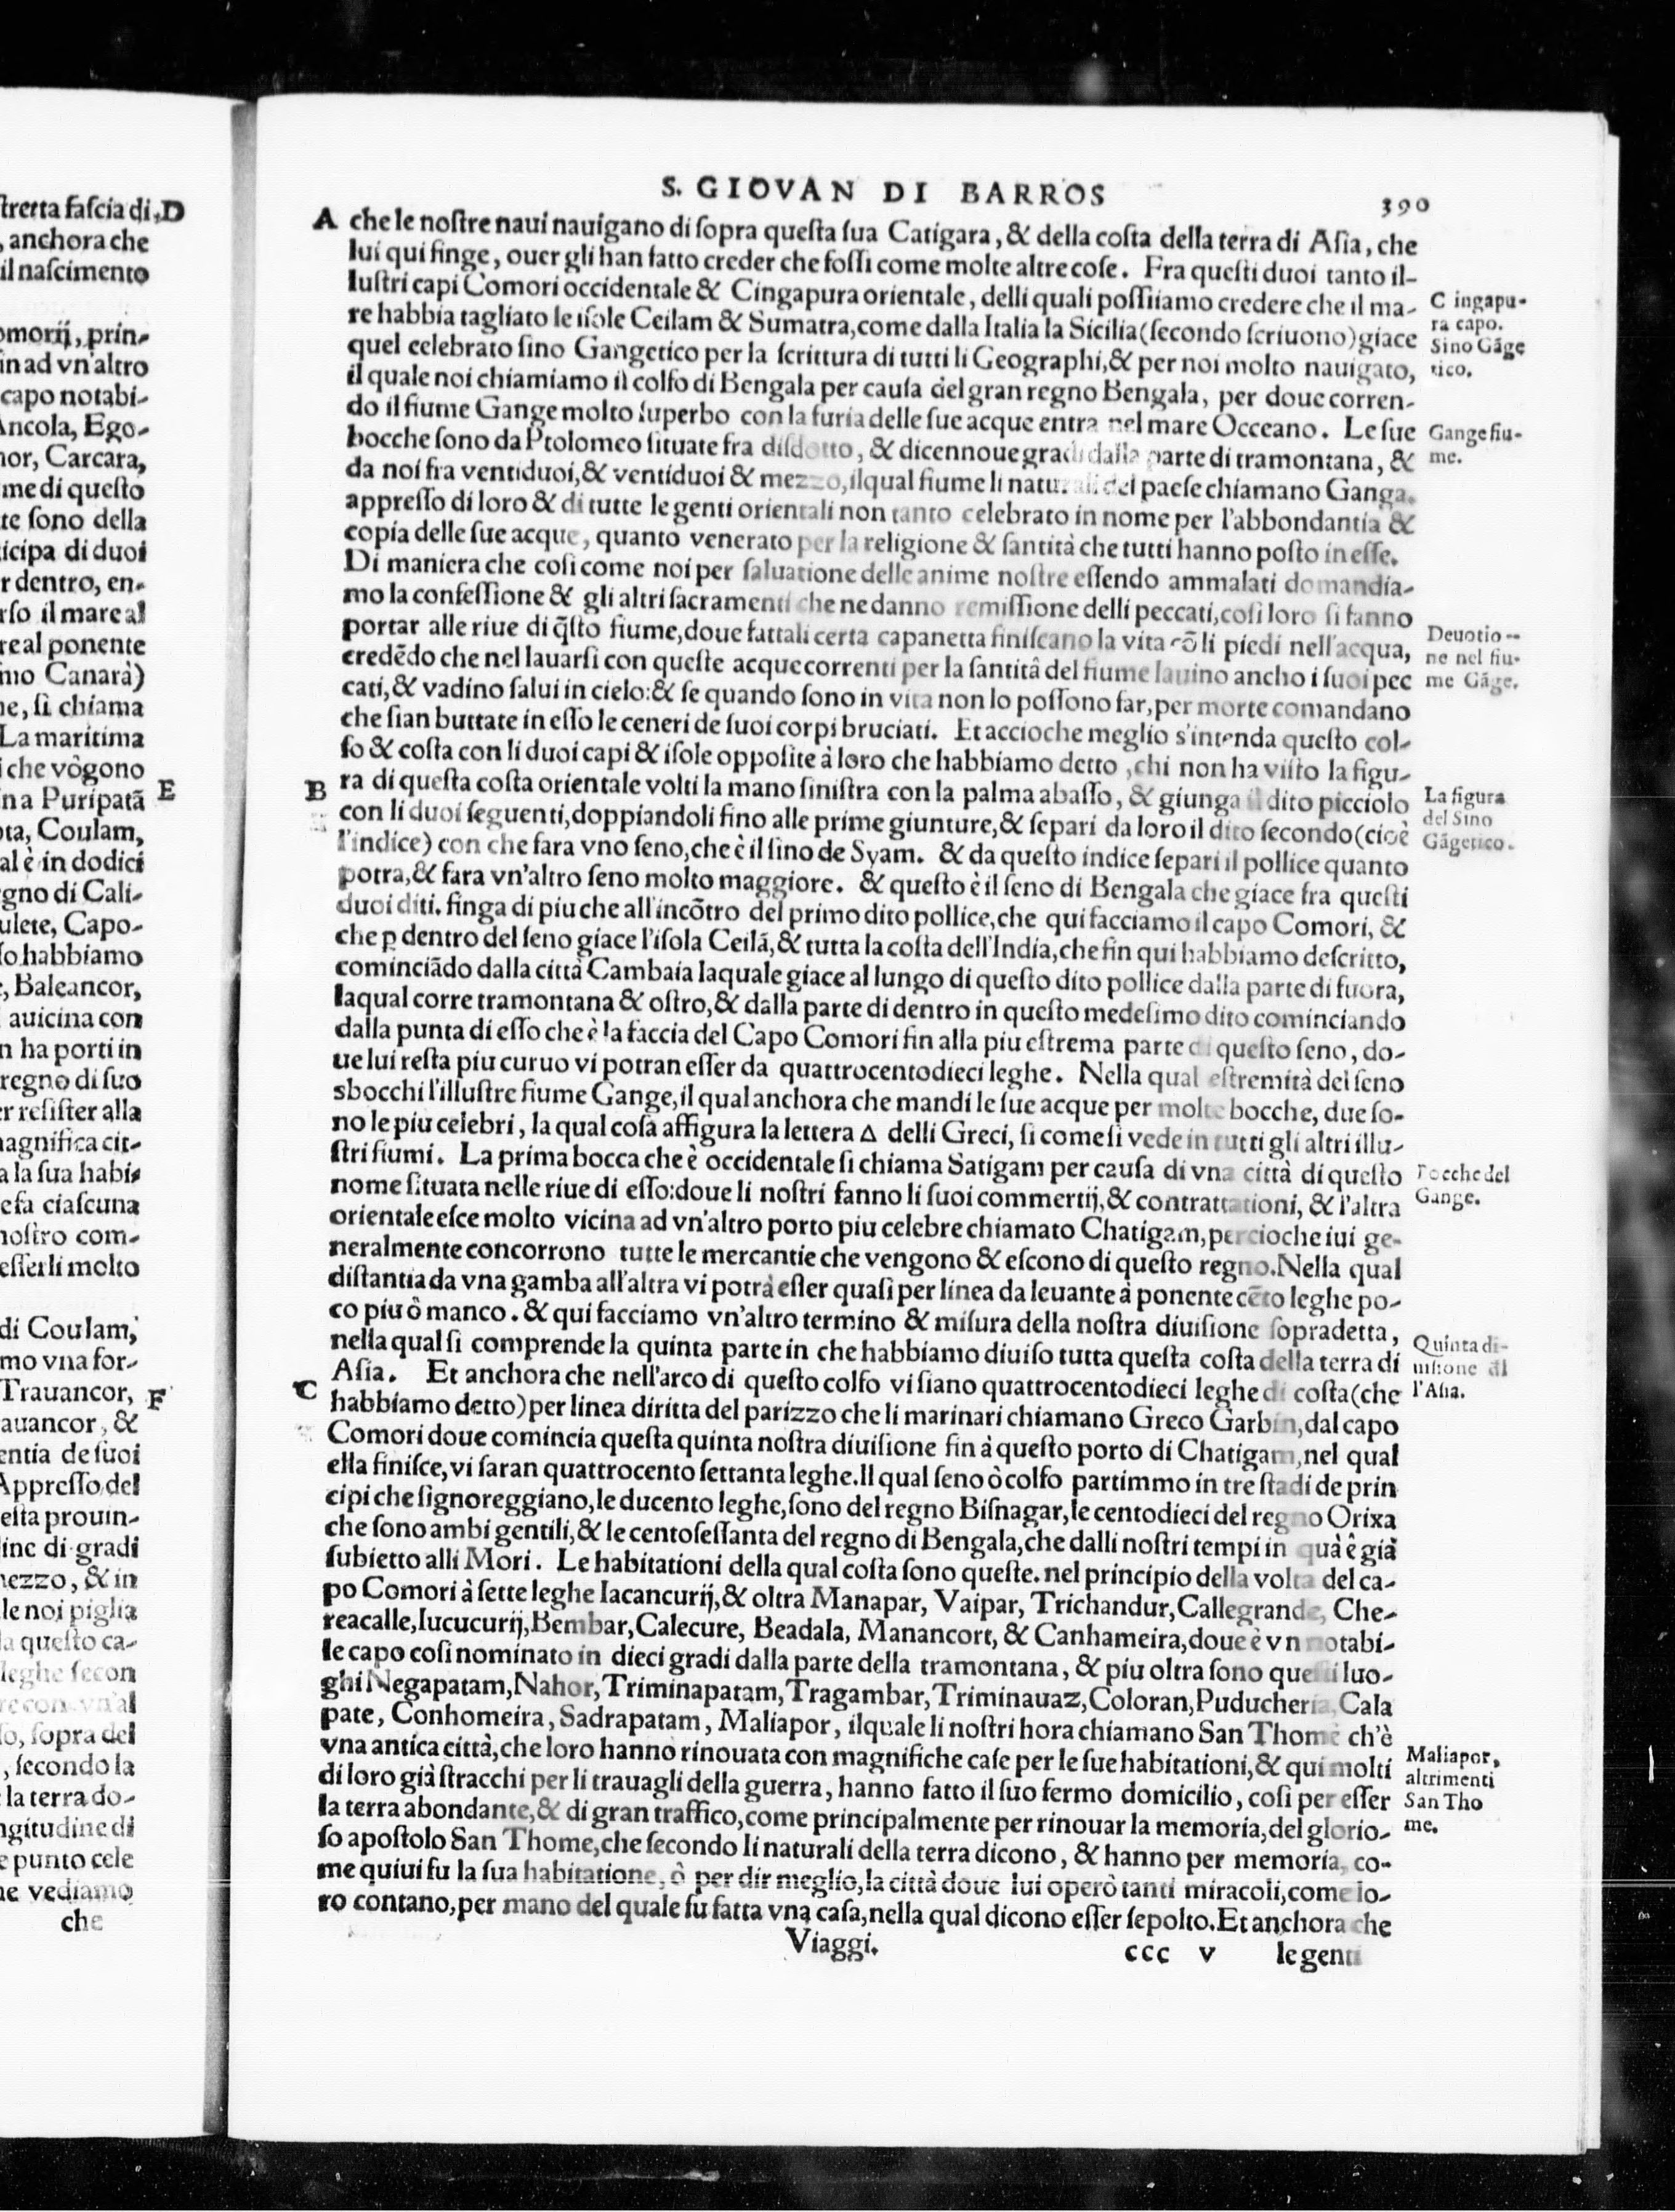 stretta fascia di,D
, anchora che
il nascimento
omorij, prin-
in ad vn'altro
capo notabi-
Ancola, Ego-
nor, Carcara,
me di questo
te sono della
ticipa di duoi
r dentro, en-
rso il mare al
real ponente
mo Canarà)
ne, si chiama
La maritima
i che vōgono
in a Puripatā E
ota, Coulam,
al è in dodici
gno di Cali-
ulete, Capo-
so habbiamo
e, Baleancor,
auicina con
n ha porti in
regno di suo
er resister alla
magnifica cit-
a la sua habi-
esa ciascuna
nostro com-
esserli molto
di Coulam,
mo vna for-
Trauancor, F
auancor, &
entia de suoi
Appresso del
esta prouin-
linc di gradi
mezzo, & in
le noi piglia
da questo ca-
leghe secon
re con vn'al
so, sopra del
, secondo la
la terra do-
ngitudine di
e punto cele
ne vediamo
che
S. GIOVAN DI BARROS
390
A che le nostre naui nauigano di sopra questa sua Catigara, & della costa della terra di Asia, che
lui qui finge, ouer gli han fatto creder che fossi come molte altre cose. Fra questi duoi tanto il-
lustri capi Comori occidentale & Cingapura orientale, delli quali possiamo credere che il ma-
re habbia tagliato le isole Ceilam & Sumatra, come dalla Italia la Sicilia (secondo scriuono) giace
quel celebrato sino Gangetico per la scrittura di tutti li Geographi, & per noi molto nauigato,
il quale noi chiamiamo il colfo di Bengala per causa del gran regno Bengala, per doue corren-
do il fiume Gange molto superbo con la furia delle sue acque entra nel mare Occeano. Le sue
bocche sono da Ptolomeo situate fra disdotto, & dicennoue gradi dalla parte di tramontana, &
da noi fra ventiduoi, & ventiduoi & mezzo, ilqual fiume li naturali del paese chiamano Ganga.
appresso di loro & di tutte le genti orientali non tanto celebrato in nome per l'abbondantia &
copia delle sue acque, quanto venerato per la religione & santità che tutti hanno posto in esse.
Di maniera che cosi come noi per saluatione delle anime nostre essendo ammalati domandia-
mo la confessione & gli altri sacramenti che ne danno remissione delli peccati, cosi loro si fanno
portar alle riue di q̃sto fiume, doue fattali certa capanetta finiscano la vita cō li piedi nell'acqua,
credēdo che nel lauarsi con queste acque correnti per la santitâ del fiume lauino ancho i suoi pec
cati, & vadino salui in cielo: & se quando sono in vita non lo possono far, per morte comandano
che sian buttate in esso le ceneri de suoi corpi bruciati. Et accioche meglio s'intenda questo col-
fo & costa con li duoi capi & isole opposite à loro che habbiamo detto, chi non ha visto la figu-
B ra di questa costa orientale volti la mano sinistra con la palma abasso, & giunga il dito picciolo
con li duoi seguenti, doppiandoli fino alle prime giunture, & separi da loro il dito secondo (cioè
l'indice) con che fara vno seno, che è il sino de Syam. & da questo indice separi il pollice quanto
potra, & fara vn'altro seno molto maggiore. & questo è il seno di Bengala che giace fra questi
duoi diti. finga di piu che all'incōtro del primo dito pollice, che qui facciamo il capo Comori, &
che ꝑ dentro del seno giace l'isola Ceilā, & tutta la costa dell'India, che fin qui habbiamo descritto,
cominciādo dalla città Cambaia laquale giace al lungo di questo dito pollice dalla parte di fuora,
laqual corre tramontana & ostro, & dalla parte di dentro in questo medesimo dito cominciando
dalla punta di esso che è la faccia del Capo Comori fin alla piu estrema parte di questo seno, do-
ue lui resta piu curuo vi potran esser da quattrocentodieci leghe. Nella qual estremità del seno
sbocchi l'illustre fiume Gange, il qual anchora che mandi le sue acque per molte bocche, due so-
no le piu celebri, la qual cosa affigura la lettera Δ delli Greci, si come si vede in tutti gli altri illu-
stri fiumi. La prima bocca che è occidentale si chiama Satigam per causa di vna città di questo
nome situata nelle riue di esso: doue li nostri fanno li suoi commertij, & contrattationi, & l'altra
orientale esce molto vicina ad vn'altro porto piu celebre chiamato Chatigam, percioche iui ge-
neralmente concorrono tutte le mercantie che vengono & escono di questo regno. Nella qual
distantia da vna gamba all'altra vi potrà esser quasi per linea da leuante à ponente cēto leghe po-
co piu ò manco. & qui facciamo vn'altro termino & misura della nostra diuisione sopradetta,
nella qual si comprende la quinta parte in che habbiamo diuiso tutta questa costa della terra di
C Asia. Et anchora che nell'arco di questo colfo vi siano quattrocentodieci leghe di costa (che
habbiamo detto) per linea diritta del parizzo che li marinari chiamano Greco Garbin, dal capo
Comori doue comincia questa quinta nostra diuisione fin à questo porto di Chatigam, nel qual
ella finisce, vi saran quattrocento settanta leghe. Il qual seno ò colfo partimmo in tre stadi de prin
cipi che signoreggiano, le ducento leghe, sono del regno Bisnagar, le centodieci del regno Orixa
che sono ambi gentili, & le centosessanta del regno di Bengala, che dalli nostri tempi in quà ê già
subietto alli Mori. Le habitationi della qual costa sono queste. nel principio della volta del ca-
po Comori à sette leghe Iacancurij, & oltra Manapar, Vaipar, Trichandur, Callegrande, Che-
reacalle, Iucucurij, Bembar, Calecure, Beadala, Manancort, & Canhameira, doue è vn notabi-
le capo cosi nominato in dieci gradi dalla parte della tramontana, & piu oltra sono questi luo-
ghi Negapatam, Nahor, Triminapatam, Tragambar, Triminauaz, Coloran, Puducheria, Cala
pate, Conhomeira, Sadrapatam, Maliapor, ilquale li nostri hora chiamano San Thome ch'è
vna antica città, che loro hanno rinouata con magnifiche case per le sue habitationi, & qui molti
di loro già stracchi per li trauagli della guerra, hanno fatto il suo fermo domicilio, cosi per esser
la terra abondante, & di gran traffico, come principalmente per rinouar la memoria, del glorio-
so apostolo San Thome, che secondo li naturali della terra dicono, & hanno per memoria, co-
me quiui fu la sua habitatione, ò per dir meglio, la città doue lui operò tanti miracoli, come lo-
ro contano, per mano del quale fu fatta vna casa, nella qual dicono esser sepolto. Et anchora che
Viaggi. ccc v le genti
Cingapu-
ra capo.
Sino Gāge
tico.
Gange fiu-
me.
Deuotio--
ne nel fiu-
me Gāge.
La figura
del Sino
Gāgetico.
Bocche del
Gange.
Quinta di-
uisione dl
l'Asia.
Maliapor,
altrimenti
San Tho
me.